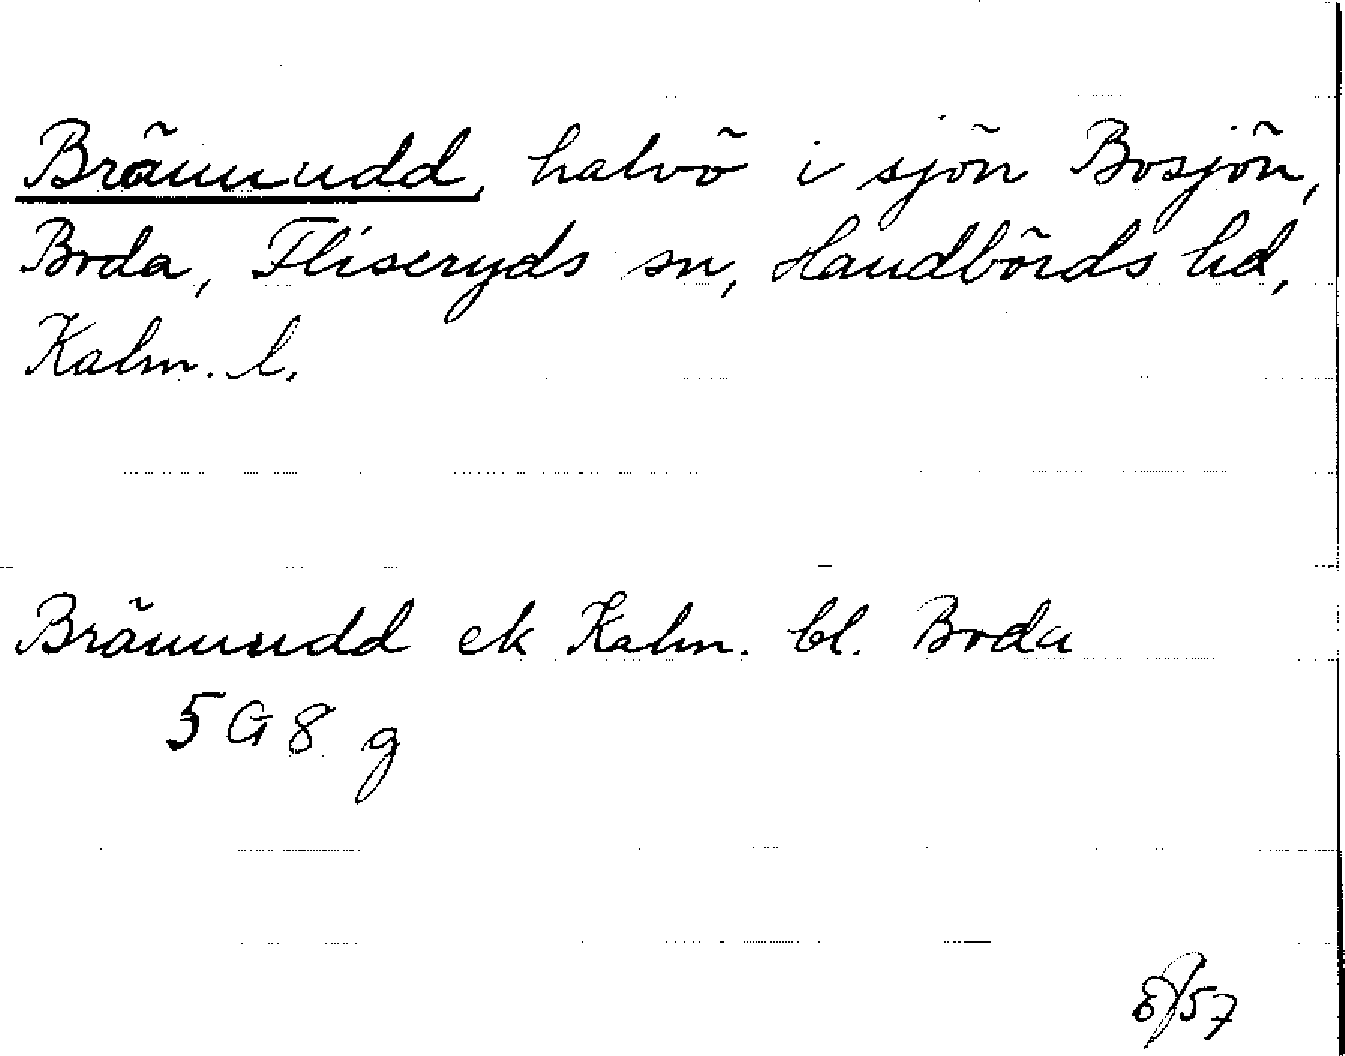 Brännudd, halvö i sjön Bosjön,
Boda, Fliseryds sn, Handbörds hd,
Kalm. l.
Brännudd ek Kalm. bl. Boda
5 G 8 g